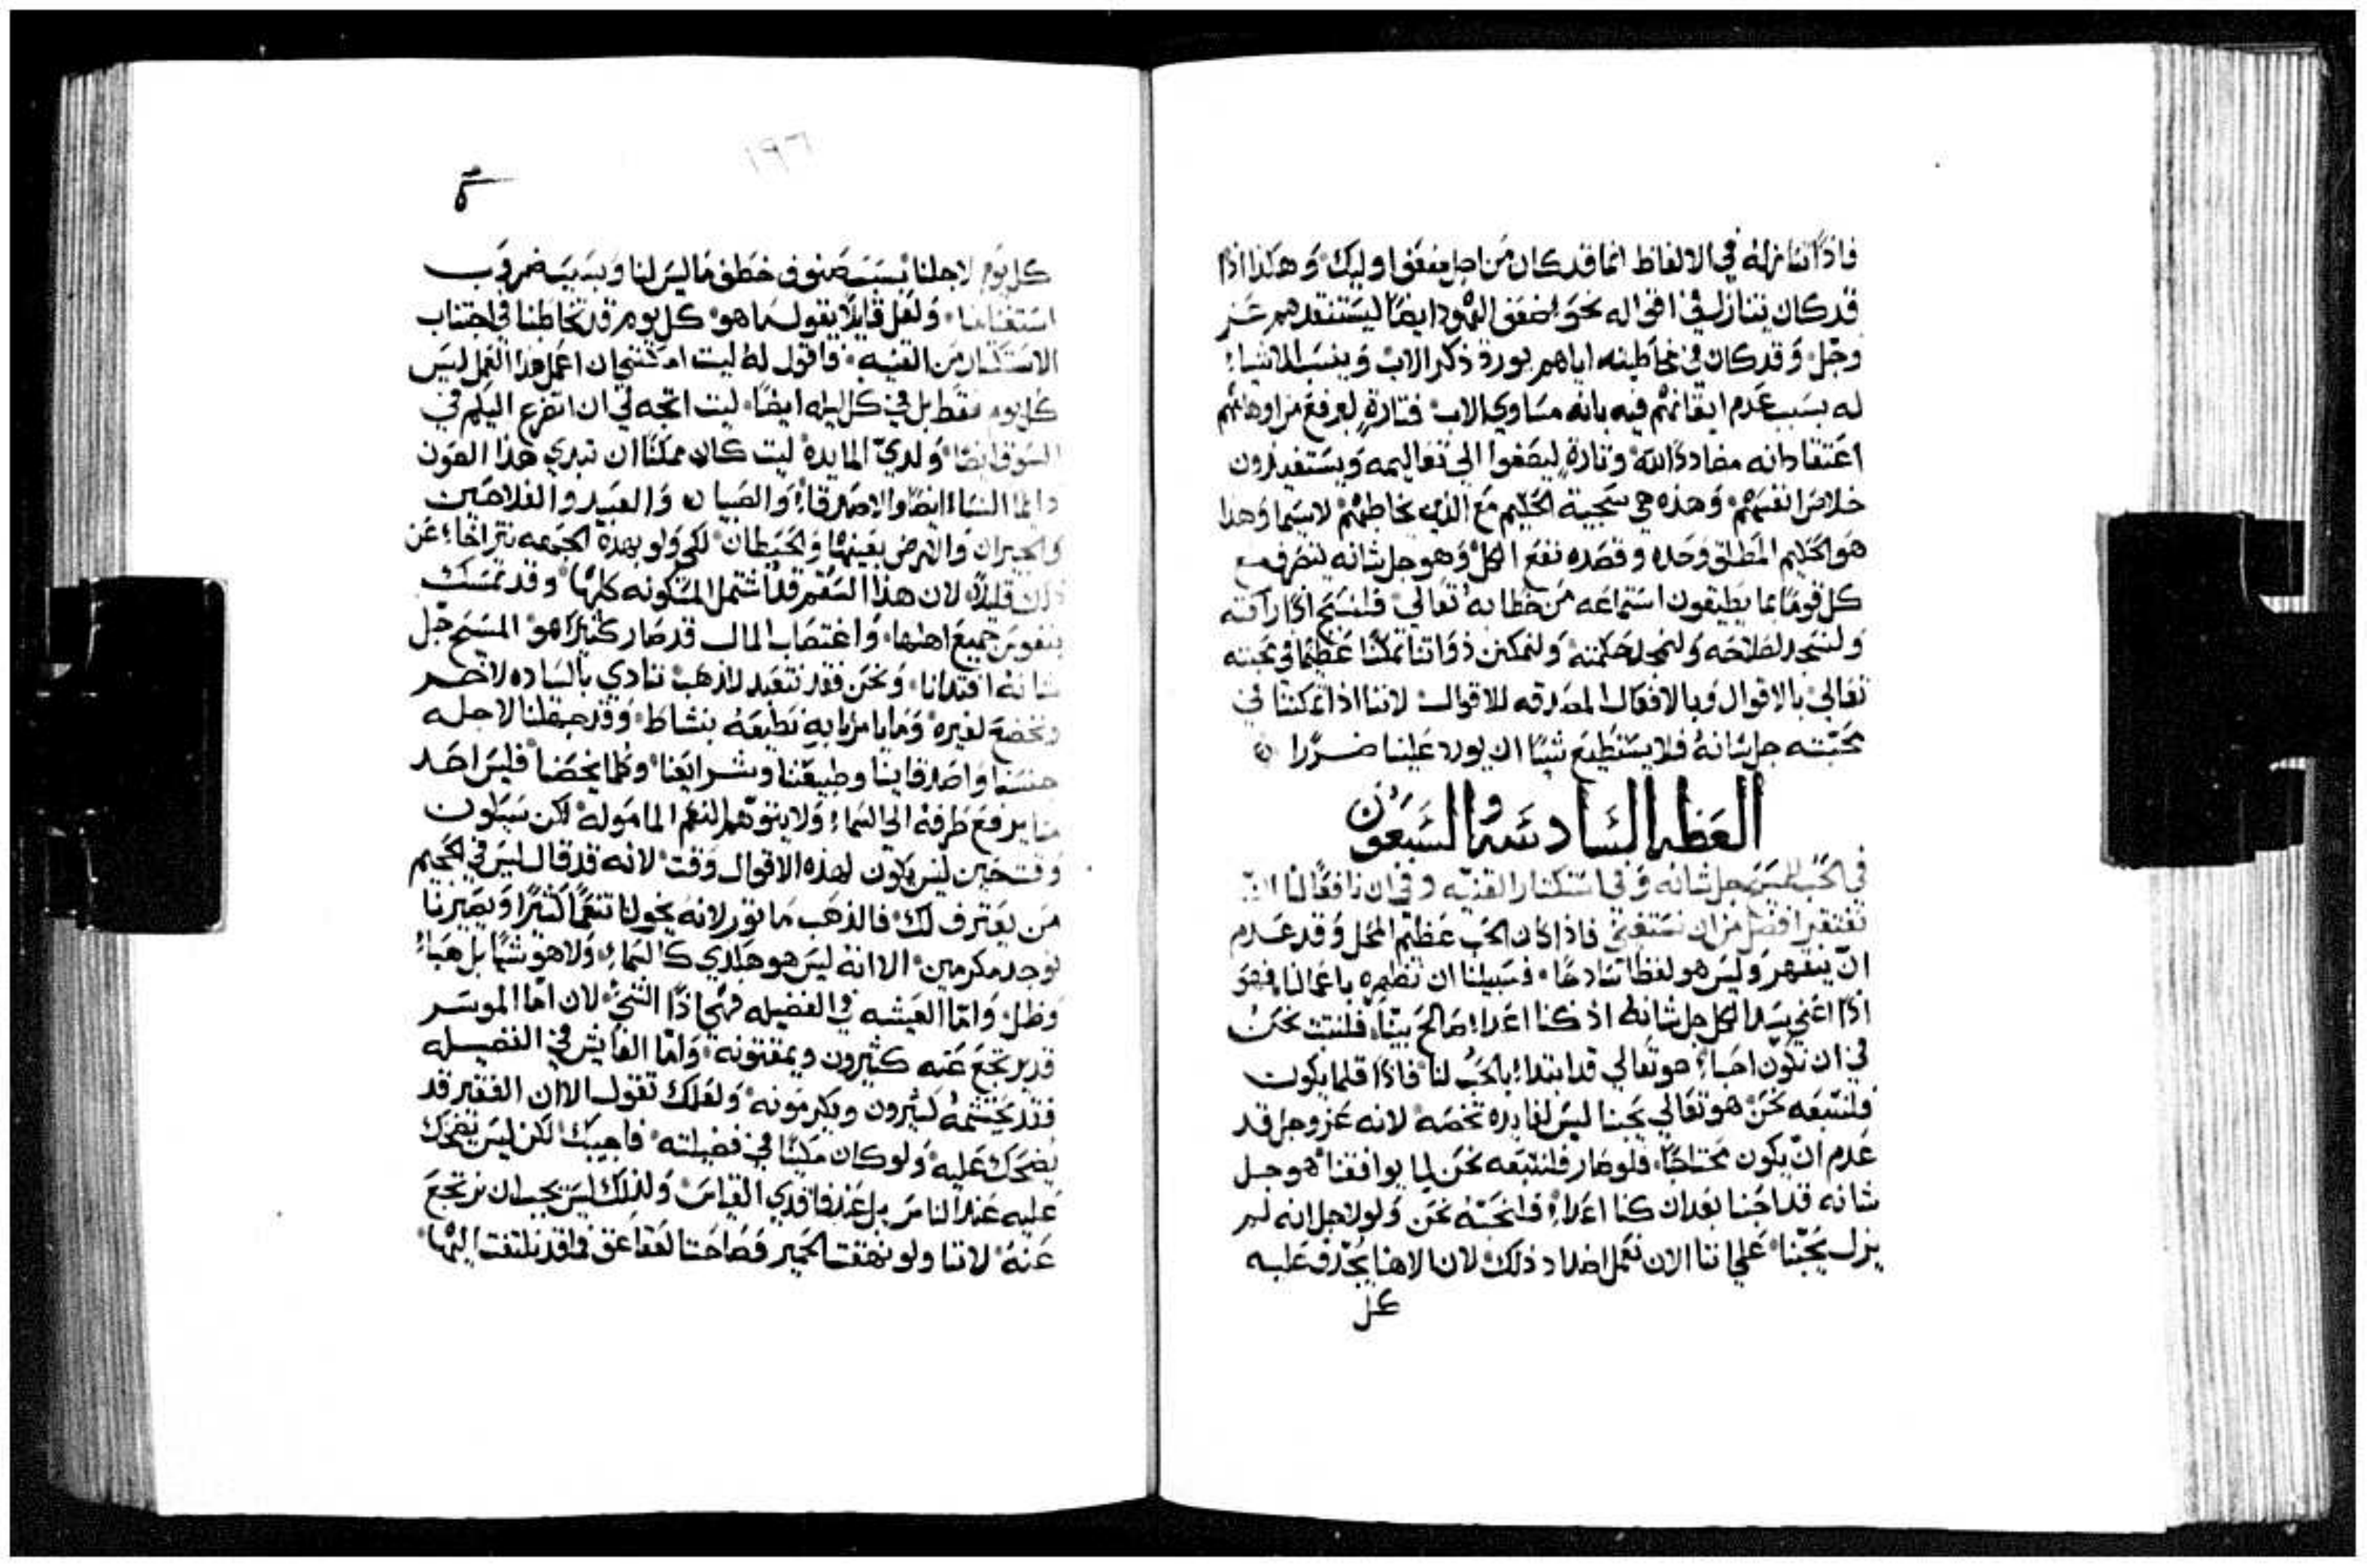 فاذًا تنازله في الالفاظ انما قد كان من اجل ضعفى اوليك وهكذا اذًا
قد كان يتنازل في اقواله نحو ضعف اليهود ايضًا ليستنقدهم عز
وجل وقد كان في مخاطبته اياهم يورد ذكر الاب وينسب الاشياء
له بسبب عدم ايقانهم فيه بانه مساوي الاب فتارةٍ ليرفع من اوهامهم
اعتقاد انه مضاددًا لله وتارةٍ ليصغوا الى تعاليمه ويستفيدون
خلاص انفسهم وهذه هي سجية الحليم مع الذين يخاطبهم لاسيما وهذا
هو الحليم المطلق وحده وقصده نفع الكل وهو جل شانه يتصرف مع
كل قومًا بما يطيقون استماعه من خطابه تعالي فلنسبح اذًا رافته
ولنسجد لصلاحه ولنمجد لحكمته ولنمكن ذواتنا تمكنًا عظيمًا في محبته
تعالي بالاقوال وبالافعال المصدقه للاقوال لاننا اذا تمكننا في
محبته جل شانهُ فلا يستطيع شيًا ان يورد علينا ضررًا
العظه السادسه والسبعون
في الحب للمسيح جل شانه وفي استكثار القنيه وفي ان نافعًا لنا ان
نفتقر افضل من ان نستغني فاذا كان الحب عظيم المحل وقد عدم
ان ينقهر وليس هو لفظًا سادجًا فسبيلنا ان نظهره باعمالنا فهو
اذًا اعني سيد الكل جل شانه اذ كنا اعداء صالح بيننا فلنثبت نحن
في ان نكون احباء هو تعالي قد ابتدا بالحب لنا فاذًا قلما يكون
فلنتبعه نحن هو تعالي يحبنا ليس لفايده تخصه لانه عز وجل قد
عدم ان يكون محتاجًا فلو صار فلنتبعه نحن لما يوافقنا هو جل
شانه قد احبنا بعد ان كنا اعداء فلنحبهُ نحن ولو لاجل انه لم
يزل يحبنا علي اننا الان نعمل اضداد ذلك لان الاهنا يجدف عليه
كل
١٩٦
كل يوم لاجلنا بسبب صنوف خطف ما ليس لنا وبسبب ضروب
استغنامنا ولعل قايلاً يقول ما هو كل يوم قد تخاطبنا في اجتناب
الاستكثار من القنيه فاقول له ليت امكنني ان اعمل هذا العمل ليس
كل يوم فقط بل في كل ليله ايضًا ليت اتجه لي ان اتفرع اليكم في
السوق ايضًا ولدي المايده ليت كان ممكنًا ان تبدي هذا الصوت
دايمًا النساء ايضًا والاصدقاء والصبيان والعبيد والفلاحين
والجيران والارض بعينها والحيطان لكي ولو بهذه الجهه نتراخا عن
ذلك قليلاً لان هذا السقم قد اشتمل المسكونه كلها وقد تمسك
بنفوس جميع اهلها واغتصاب المال قد صار كثيرًا هو المسيح جل
شانهُ افتدانا ونحن فقد نتعبد للذهب ننادي بالسياده لاخر
ونخضع لغيره وما يامرنا به نطيعهُ بنشاط وقد جهلنا لاجله
جنسنا واصدقاينا وطبيعتنا وشرايعنا وكلما يخصنا فليس احد
منا يرفع طرفه الي السماء ولا يتوهم النعم المامولة لكن سيكون
وقت حين ليس يكون لهذه الاقوال وقت لانه قد قال ليس في الجحيم
من يعترف لك فالذهب ما نوثر لانه يخولنا تنعمًا كثيرًا ويصيرنا
نوجد مكرمين الا انه ليس هو هكذي كالسماء ولا هو شيًا بل هباء
وظل واما العيشه في الفضيله فهي اذًا الشيء لان اما الموسر
قد يرتجع عنه كثيرون ويمقتونه واما العايش في الفضيله
فقد يحتشمهُ كثيرون ويكرمونه ولعلك تقول الا ان الفقير قد
يضحك عليه ولو كان مكينًا في فضيلته فاجيبك لكن ليس يضحك
عليه عند الناس بل عند فاقدي القياس ولذلك ليس يجب ان نرتجع
عنهُ لاننا ولو نهقت الحمير وصاحت العقاعق فما قد نلتفت اليها